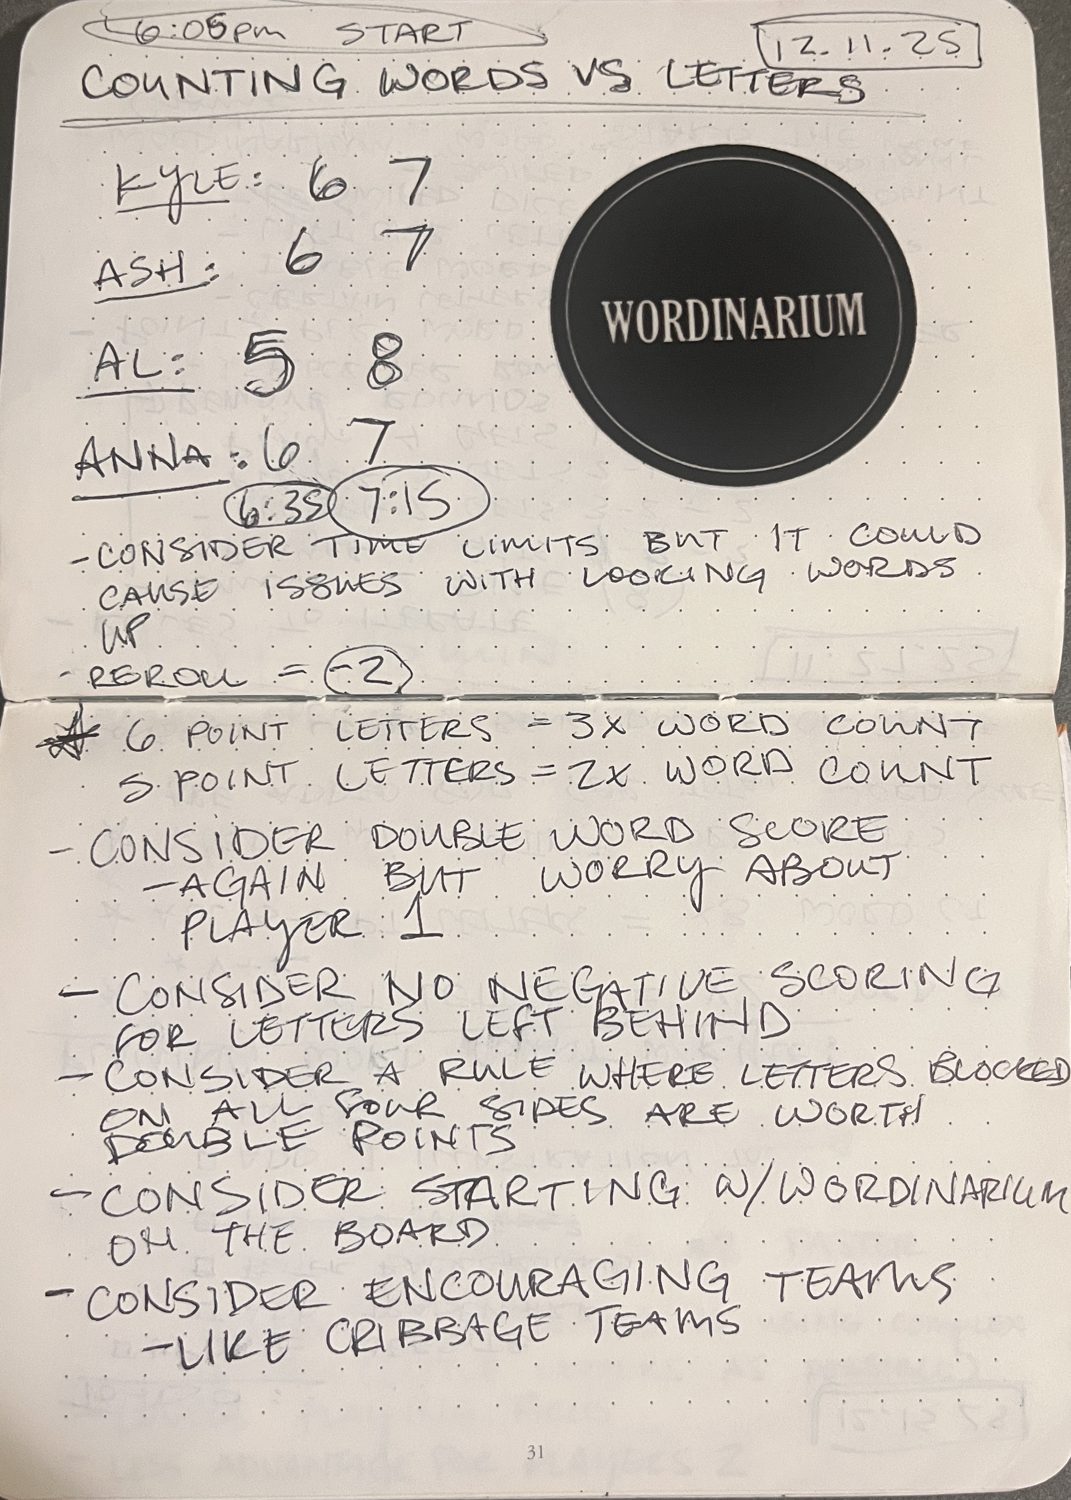 6:05pm START
12.11.25
COUNTING WORDS VS LETTERS
KYLE: 6 7
ASH: 6 7
AL: 5 8
WORDINARIUM
ANNA: 6 7
6:35 7:15
- CONSIDER TIME LIMITS BUT IT COULD
CAUSE ISSUES WITH LOOKING WORDS
UP
- REROLL = -2
★ 6 POINT LETTERS = 3X WORD COUNT
5 POINT LETTERS = 2X WORD COUNT
- CONSIDER DOUBLE WORD SCORE
- AGAIN BUT WORRY ABOUT
PLAYER 1
- CONSIDER NO NEGATIVE SCORING
FOR LETTERS LEFT BEHIND
- CONSIDER A RULE WHERE LETTERS BLOCKED
ON ALL FOUR SIDES ARE WORTH
DOUBLE POINTS
- CONSIDER STARTING W/ WORDINARIUM
ON THE BOARD
- CONSIDER ENCOURAGING TEAMS
- LIKE CRIBBAGE TEAMS
31